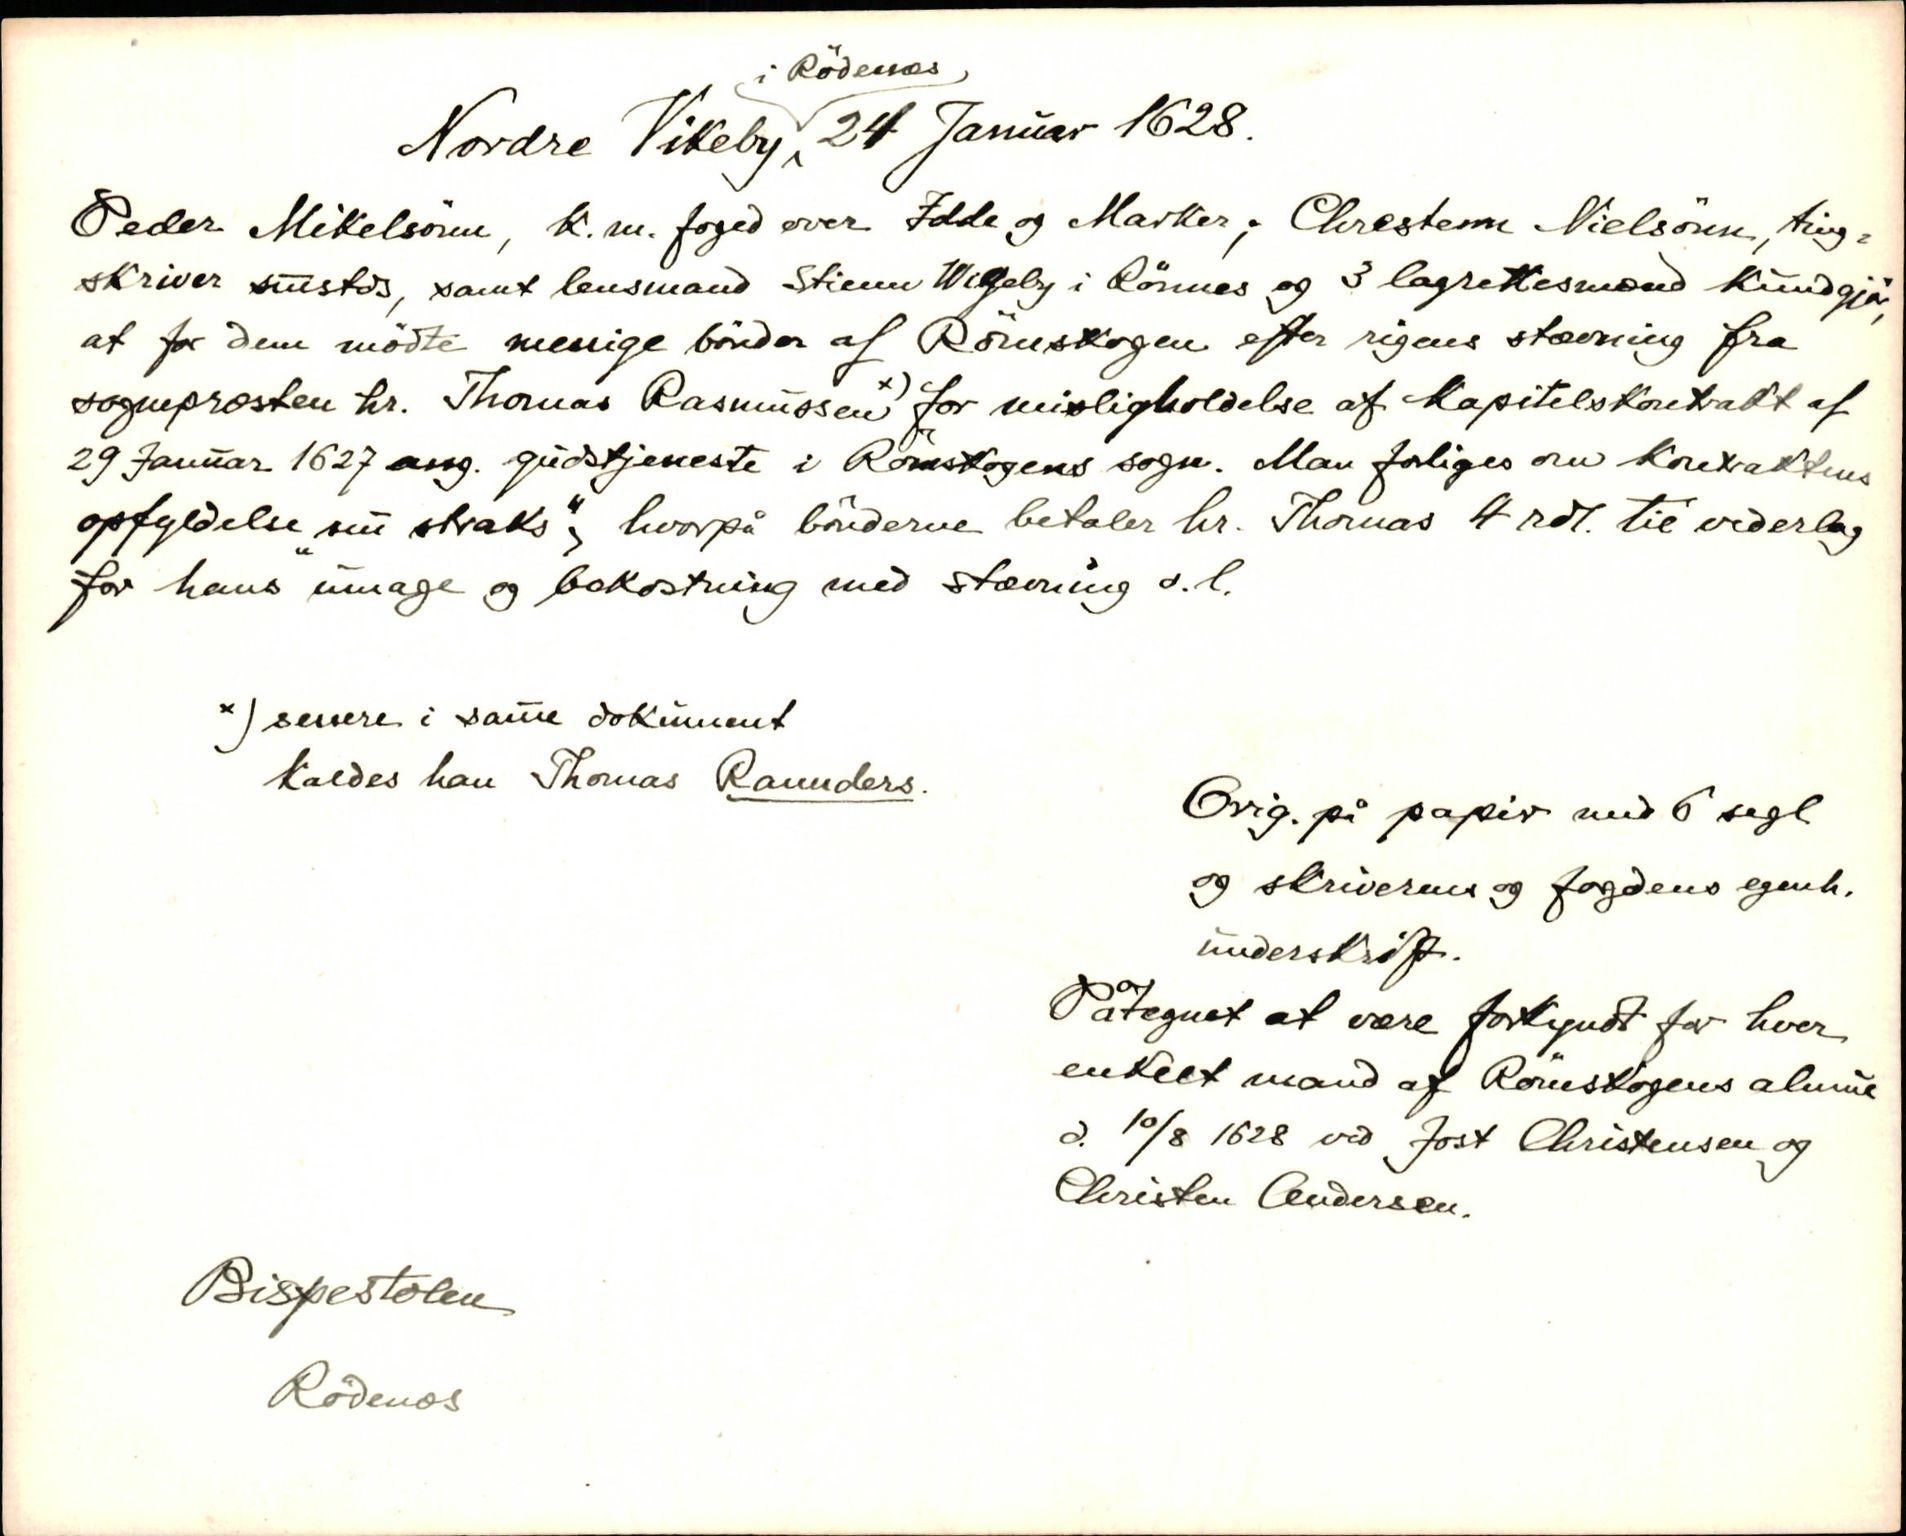 i Rödenæs
Nordre Vikeby, 24 Januar 1628.
Peder Mikelsönn, k. m. foged over Idde og Marker, Chrestenn Nielsönn, ting-
skriver sm̄stds, samt lensmand Stienn Wigeby i Rönnes og 3 lagrettesmænd kundgjör,
at for dem mödte menige bönder af Römskogen efter rigens stævning fra
sognepræsten hr. Thomas Rasmussen x) for misligholdelse af kapitelskontrakt af
29 Januar 1627 ang. gudstjeneste i Römskogens sogn. Man forliges om kontraktens
opfyldelse "nu straks", hvorpå bönderne betaler hr. Thomas 4 rdl. til vederlag
for hans "umage og bekostning med stævning o. l.
x) senere i sam̄e dokument
kaldes han Thomas Raunders.
Orig. på papir med 6 segl
og skriverens og fogdens egenh.
underskrift.
Påtegnet at være forkyndt for hver
enkelt mand af Römskogens almue
d. 10/8 1628 ved Jost Christensen og
Christen Andersen.
Bispestolen
Rödenæs